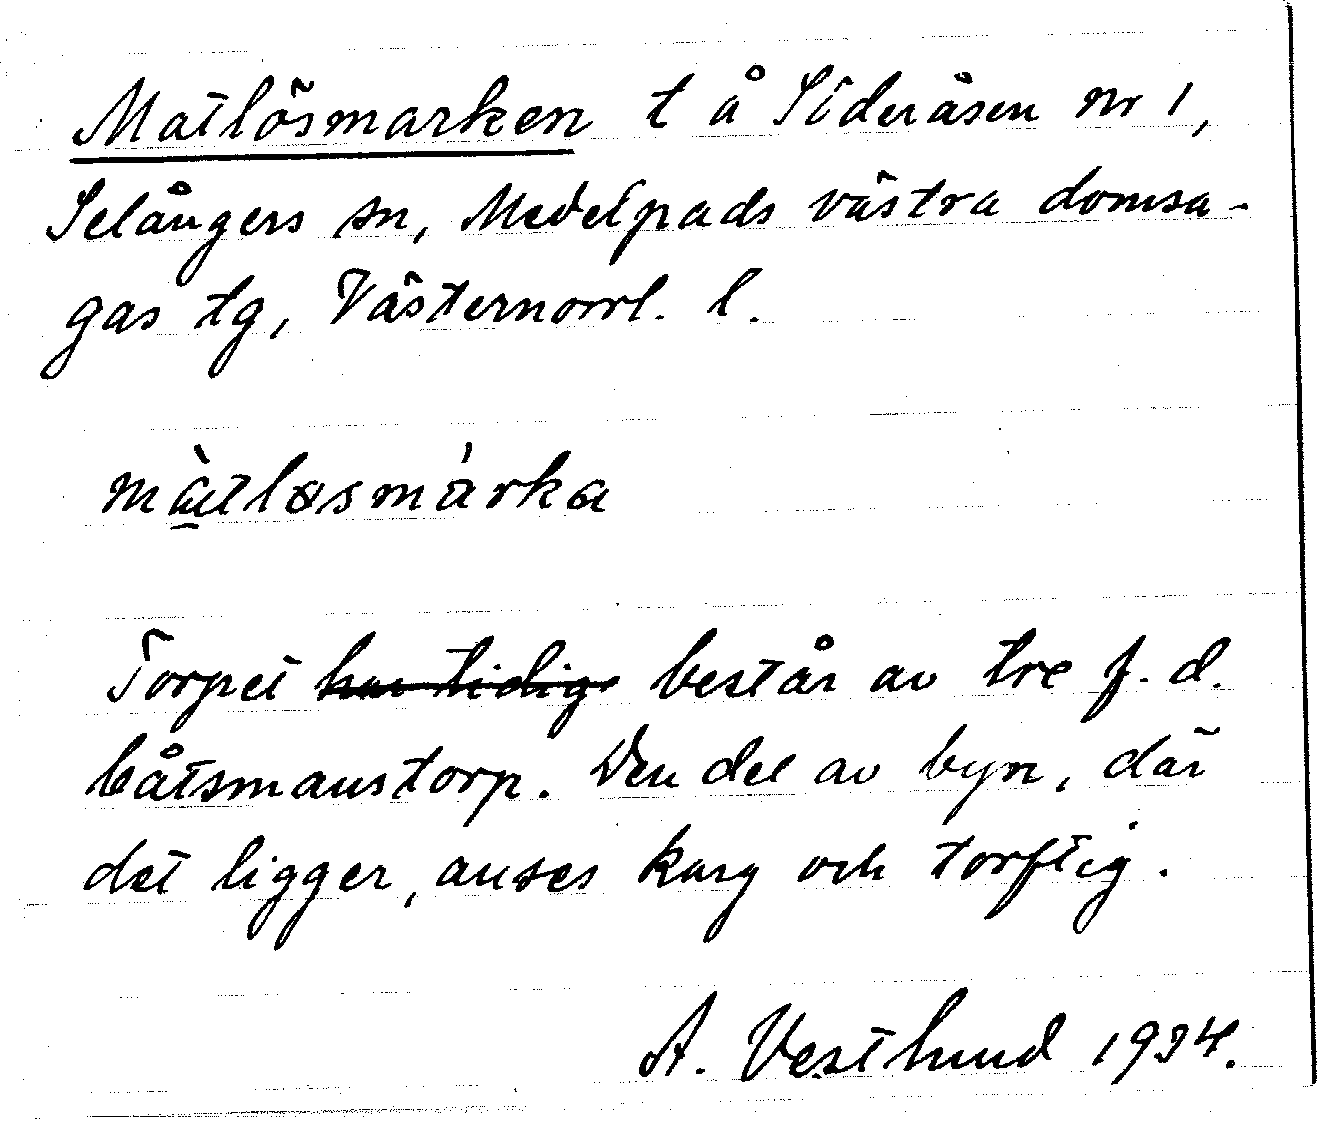 Matlösmarken t å Söderåsen nr 1,
Selångers sn, Medelpads västra domsa-
gas tg, Västernorrl. l.
màtløsmárka
Torpet har tidig består av tre f. d.
båtsmanstorp. Den del av byn, där
det ligger, anses karg och torftig.
A. Vestlund 1924.